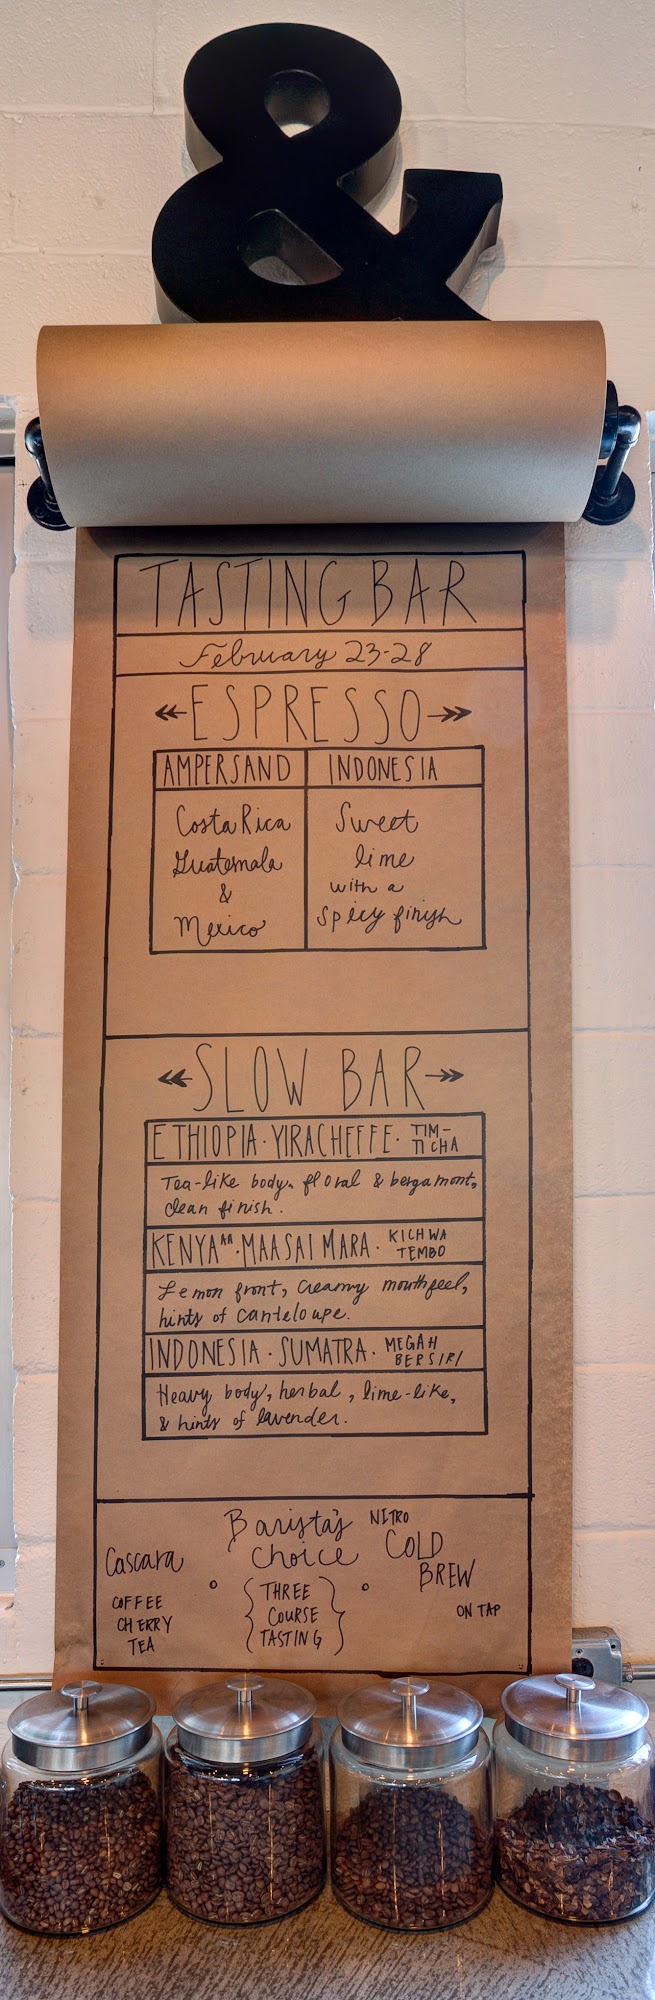 &
TASTING BAR
February 23-28
ESPRESSO
AMPERSAND
Costa Rica
Guatemala
&
Mexico
INDONESIA
Sweet
lime
with a
spicy finish
SLOW BAR
ETHIOPIA · YIRACHEFFE · TIM-
TI CHA
Tea-like body, floral & bergamont,
clean finish.
KENYA AA · MAASAI MARA · KICHWA
TEMBO
Lemon front, creamy mouthfeel,
hints of canteloupe.
INDONESIA · SUMATRA · MEGAH
BERSIRI
Heavy body, herbal, lime-like,
& hints of lavender.
Cascara
COFFEE
CHERRY
TEA
Barista's
Choice
{THREE
COURSE
TASTING}
NITRO
COLD
BREW
ON TAP